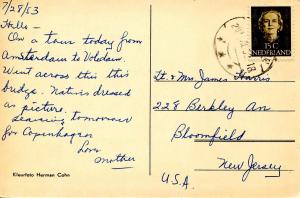 7/28/53
Hello -
On a tour today from
Amsterdam to Volendam.
Went across thru this
bridge. Natives dressed
as picture.
Leaving tomorrow
for Copenhagen
Love
Mother
Kleurfoto Herman Cohn
15 C
NEDERLAND
Lt. & Mrs James Harris
228 Berkley Av.
Bloomfield
New Jersey
U.S.A.